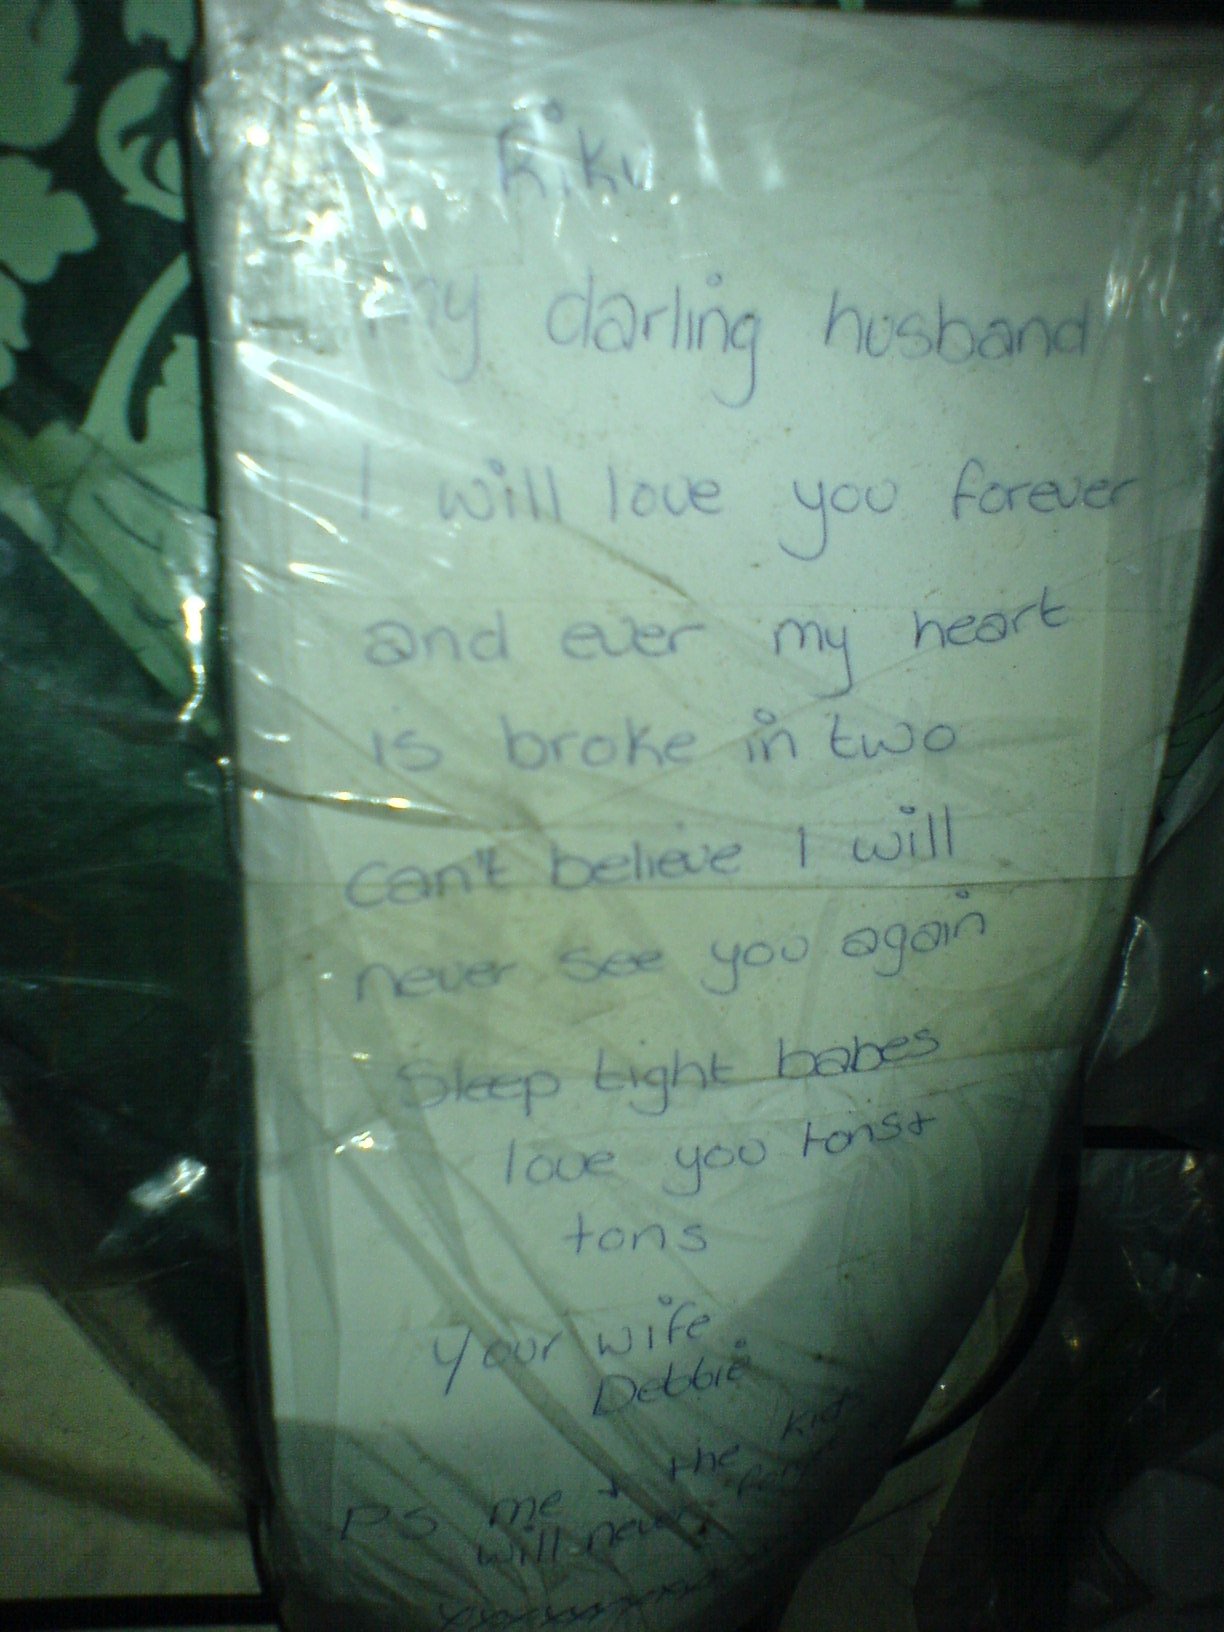 My darling husband
I will love you forever
and ever my heart
is broke in two
can't believe I will
never see you again
Sleep tight babes
love you tons +
tons
Your wife
Debbie
PS me + the
will never